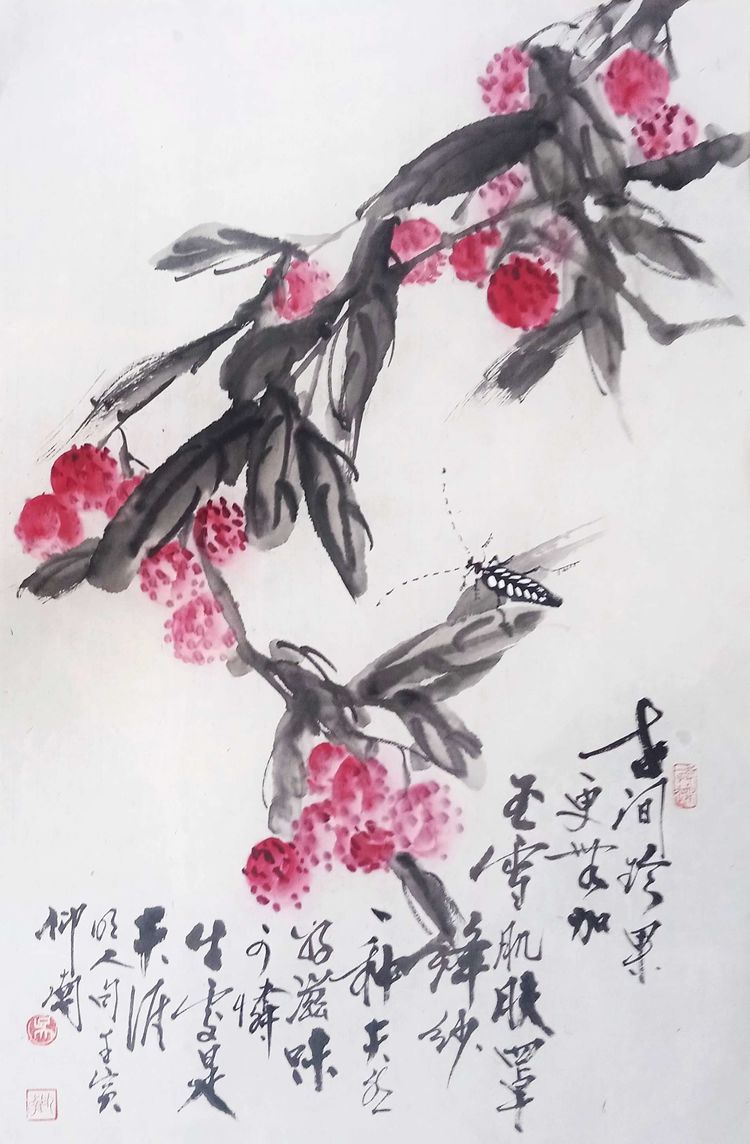 世间珍果
更無加
玉雪肌肤罩
绛纱
一种天然
好滋味
可憐
生处是
天涯
明人句壬寅
仰南